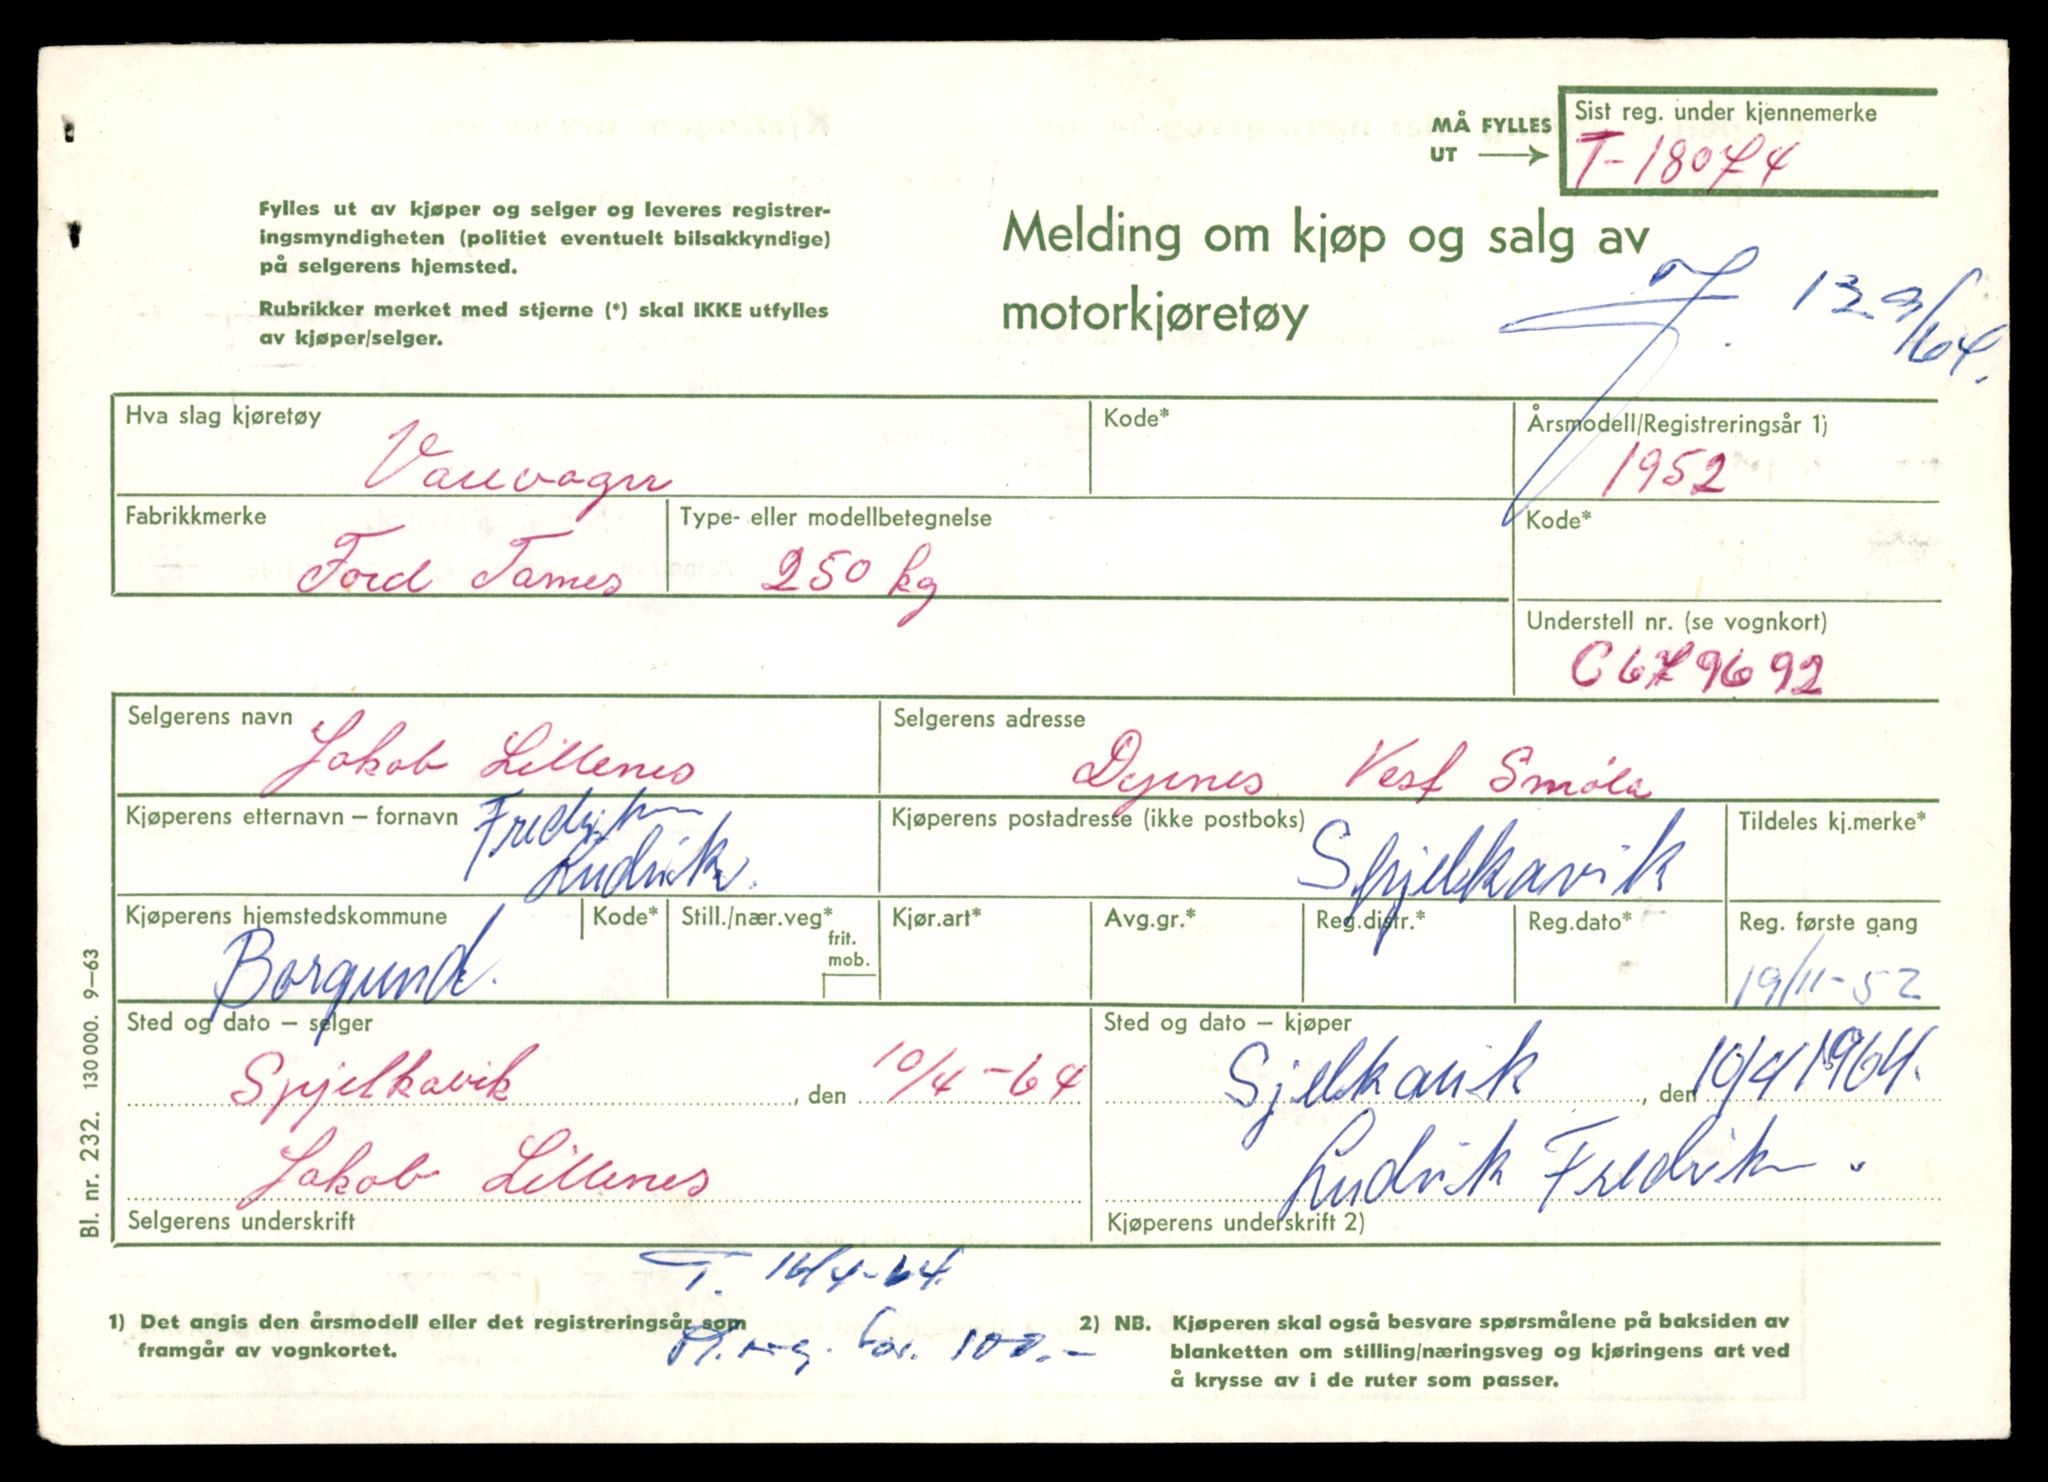 MÅ FYLLES
UT
Sist reg. under kjennemerke
T-18074
Fylles ut av kjøper og selger og leveres registrer-
ingsmyndigheten (politiet eventuelt bilsakkyndige)
på selgerens hjemsted.
Rubrikker merket med stjerne (*) skal IKKE utfylles
av kjøper/selger.
Melding om kjøp og salg av
motorkjøretøy
Hva slag kjøretøy
Varevogn
Kode*
Årsmodell/Registreringsår 1)
1952
Fabrikkmerke
Ford Tames
Type- eller modellbetegnelse
250 kg
Kode*
Understell nr. (se vognkort)
C679692
Selgerens navn
Jakob Lillenes
Selgerens adresse
Dyrnes Vest Smøla
Kjøperens etternavn – fornavn
Fredriksen
Ludvik.
Kjøperens postadresse (ikke postboks)
Spjelkavik
Tildeles kj.merke*
Kjøperens hjemstedskommune
Borgund.
Kode*
Still./nær.veg*
frit.
mob.
Kjør.art*
Avg.gr.*
Reg.distr.*
Reg.dato*
Reg. første gang
19/11-52
Sted og dato – selger
Spjelkavik, den 10/4-64
Sted og dato – kjøper
Sjelkavik, den 10/4 1964.
Jakob Lillenes
Selgerens underskrift
Ludvik Fredriksen.
Kjøperens underskrift 2)
T. 16/4-64.
for. 100.-
1) Det angis den årsmodell eller det registreringsår som
framgår av vognkortet.
2) NB. Kjøperen skal også besvare spørsmålene på baksiden av
blanketten om stilling/næringsveg og kjøringens art ved
å krysse av i de ruter som passer.
Bl. nr. 232. 130 000. 9–63